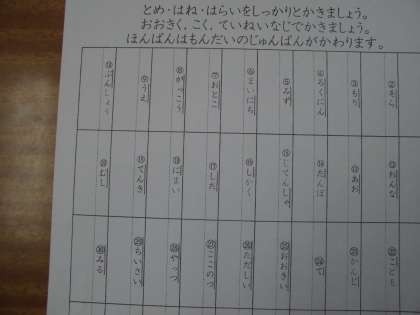 とめ・はね・はらいをしっかりとかきましょう。
おおきく、こく、ていねいなじでかきましょう。
ほんばんはもんだいのじゅんばんがかわります。
②そら
③もり
④ろくにん
⑤みず
⑥まいにち
⑦おとこ
⑧がっこう
⑨うえ
⑩ぶんしょう
⑫おんな
⑬あお
⑭たんぼ
⑮じてんしゃ
⑯しかく
⑰した
⑱にまい
⑲てんき
⑳むし
㉒こども
㉓かんじ
㉔て
㉕おおきい
㉖ただしい
㉗ここのつ
㉘やっつ
㉙ちいさい
㉚みる